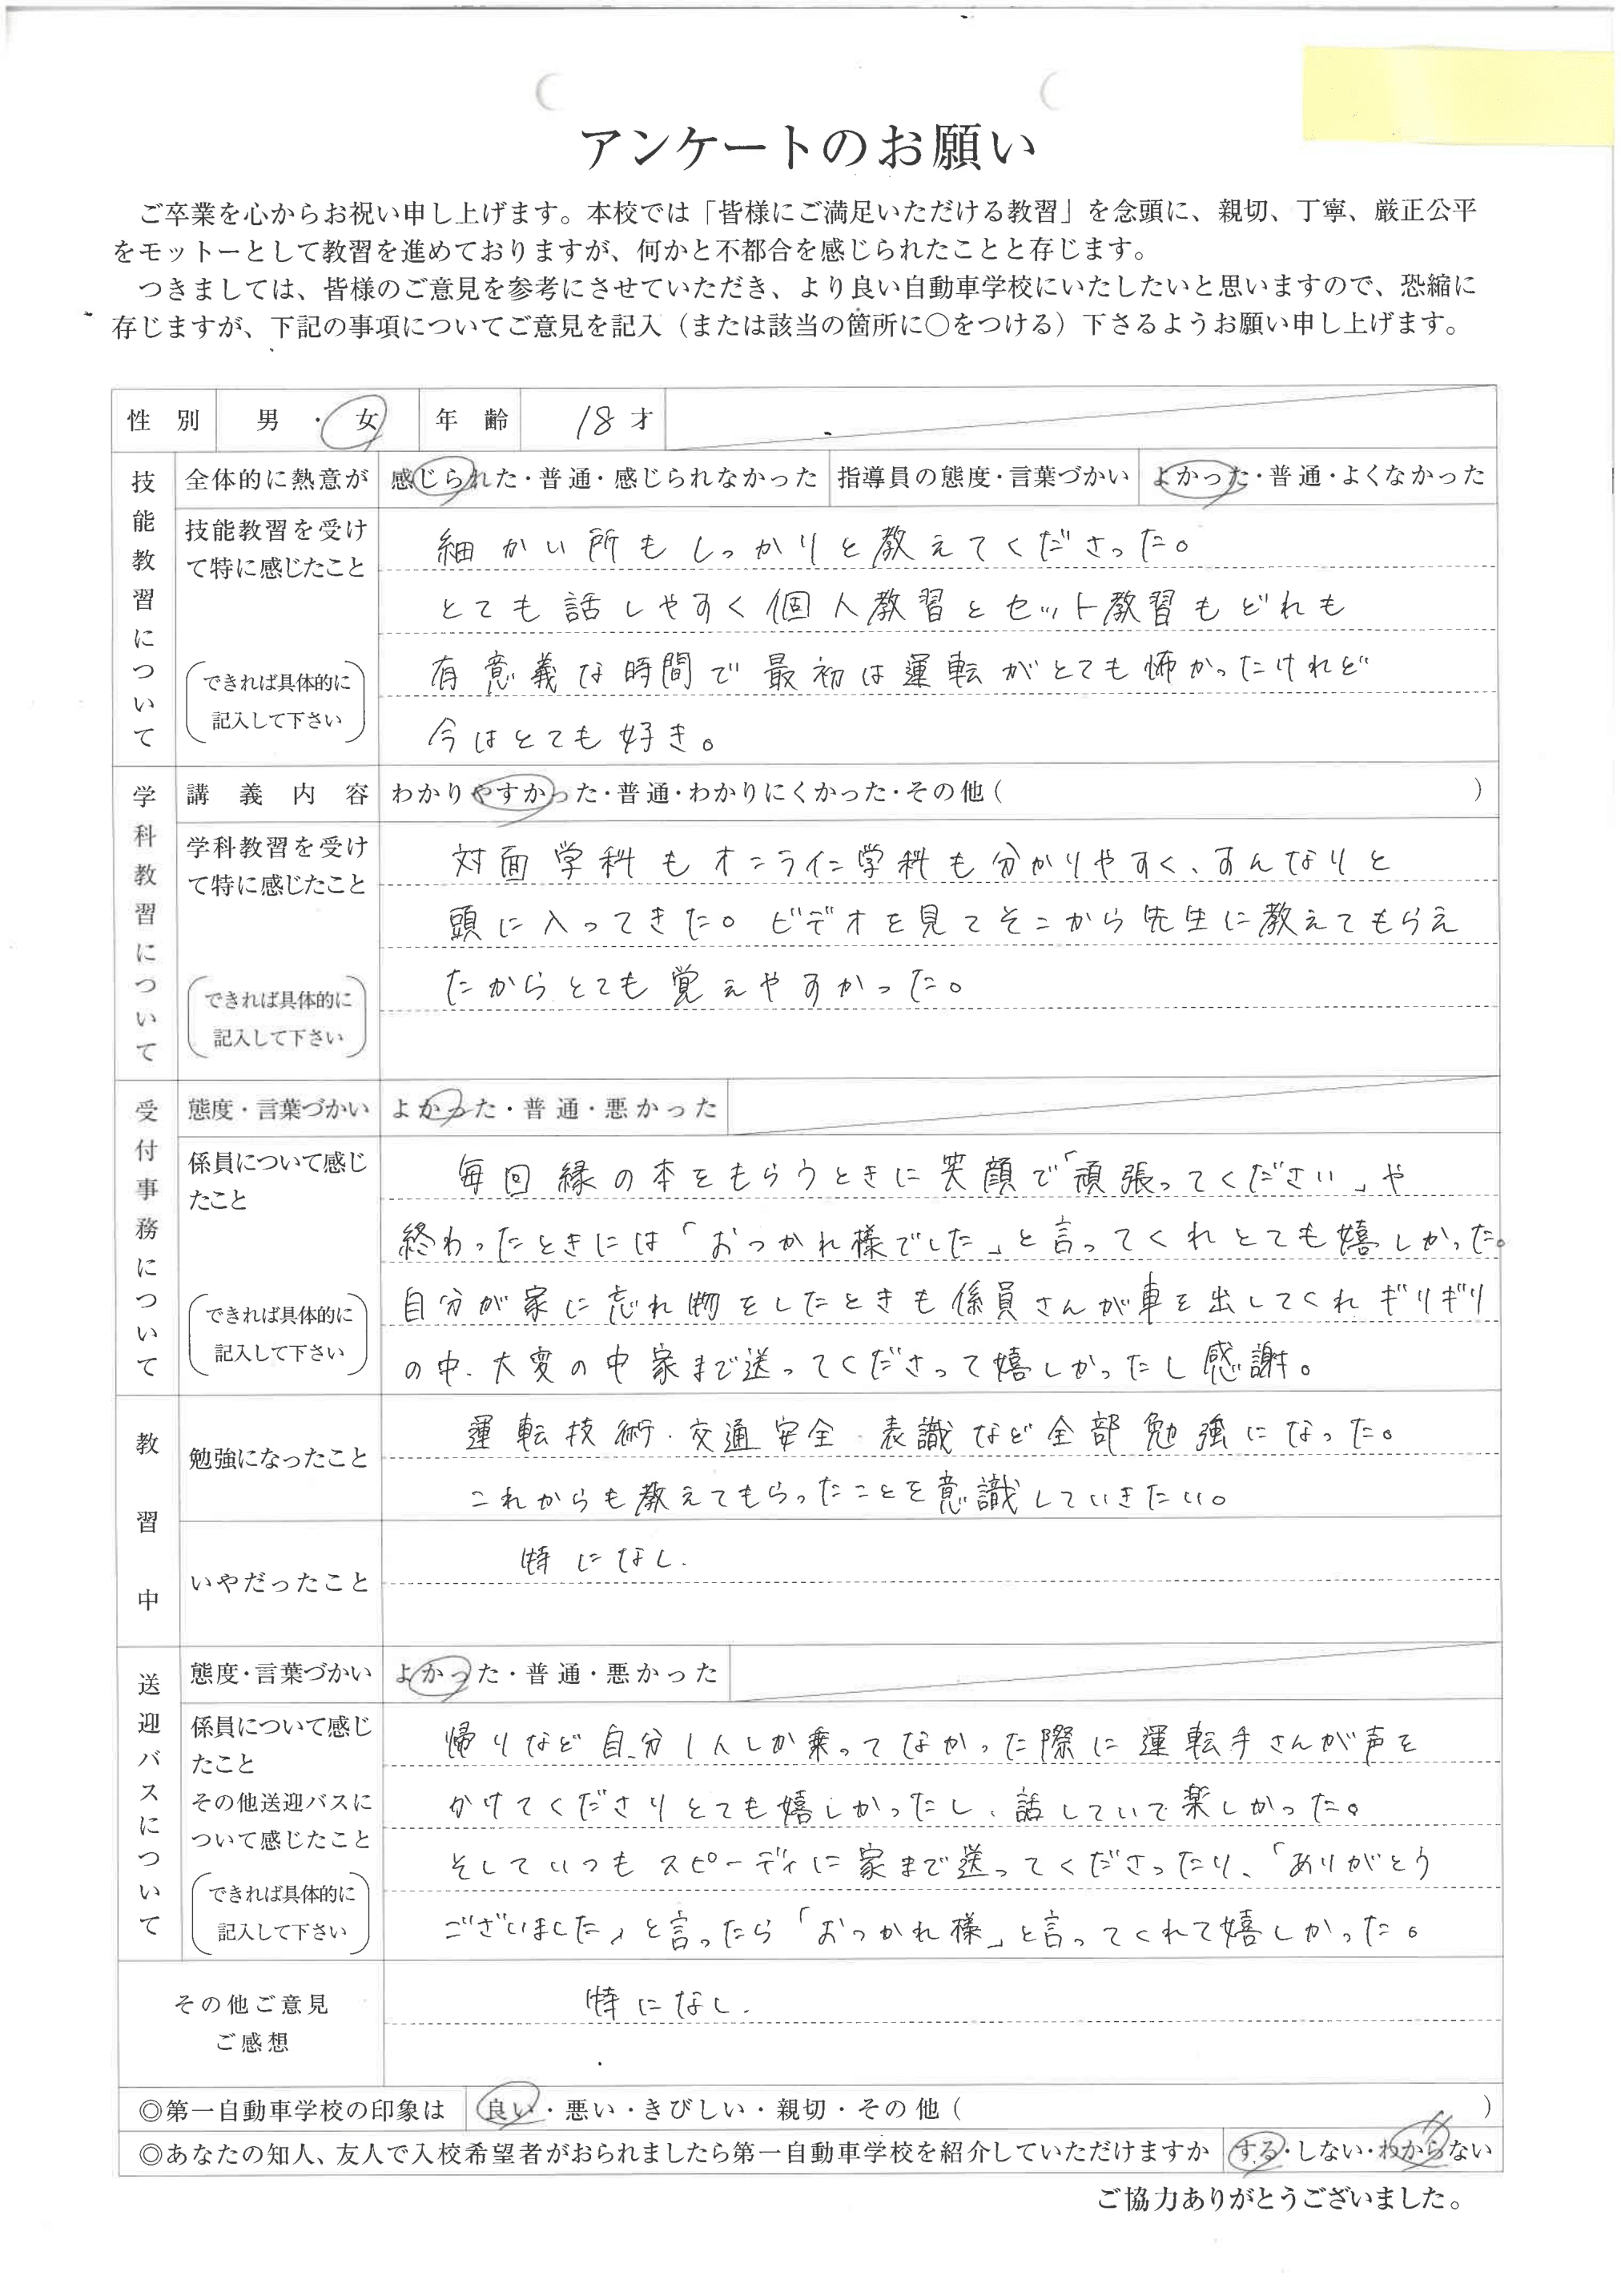 アンケートのお願い
ご卒業を心からお祝い申し上げます。本校では「皆様にご満足いただける教習」を念頭に、親切、丁寧、厳正公平
をモットーとして教習を進めておりますが、何かと不都合を感じられたことと存じます。
つきましては、皆様のご意見を参考にさせていただき、より良い自動車学校にいたしたいと思いますので、恐縮に
存じますが、下記の事項についてご意見を記入(または該当の箇所に○をつける)下さるようお願い申し上げます。
性別 男・女 年齢 18才
技能教習について
全体的に熱意が 感じられた・普通・感じられなかった 指導員の態度・言葉づかい よかった・普通・よくなかった
技能教習を受け
て特に感じたこと
(できれば具体的に
記入して下さい)
細かい所もしっかりと教えてくださった。
とても話しやすく個人教習とセット教習もどれも
有意義な時間で最初は運転がとても怖かったけれど
今はとても好き。
学科教習について
講義内容 わかりやすかった・普通・わかりにくかった・その他( )
学科教習を受け
て特に感じたこと
(できれば具体的に
記入して下さい)
対面学科もオンライン学科も分かりやすく、すんなりと
頭に入ってきた。ビデオを見てそこから先生に教えてもらえ
たからとても覚えやすかった。
受付事務について
態度・言葉づかい よかった・普通・悪かった
係員について感じ
たこと
(できれば具体的に
記入して下さい)
毎回緑の本をもらうときに笑顔で「頑張ってください」や
終わったときには「おつかれ様でした」と言ってくれとても嬉しかった。
自分が家に忘れ物をしたときも係員さんが車を出してくれギリギリ
の中、大変の中家まで送ってくださって嬉しかったし感謝。
教習中
勉強になったこと
運転技術・交通安全・表識など全部勉強になった。
これからも教えてもらったことを意識していきたい。
いやだったこと
特になし.
送迎バスについて
態度・言葉づかい よかった・普通・悪かった
係員について感じ
たこと
その他送迎バスに
ついて感じたこと
(できれば具体的に
記入して下さい)
帰りなど自分1人しか乗ってなかった際に運転手さんが声を
かけてくださりとても嬉しかったし、話していて楽しかった。
そしていつもスピーディに家まで送ってくださったり、「ありがとう
ございました」と言ったら「おつかれ様」と言ってくれて嬉しかった。
その他ご意見
ご感想
特になし.
◎第一自動車学校の印象は 良い・悪い・きびしい・親切・その他( )
◎あなたの知人、友人で入校希望者がおられましたら第一自動車学校を紹介していただけますか する・しない・わからない
ご協力ありがとうございました。